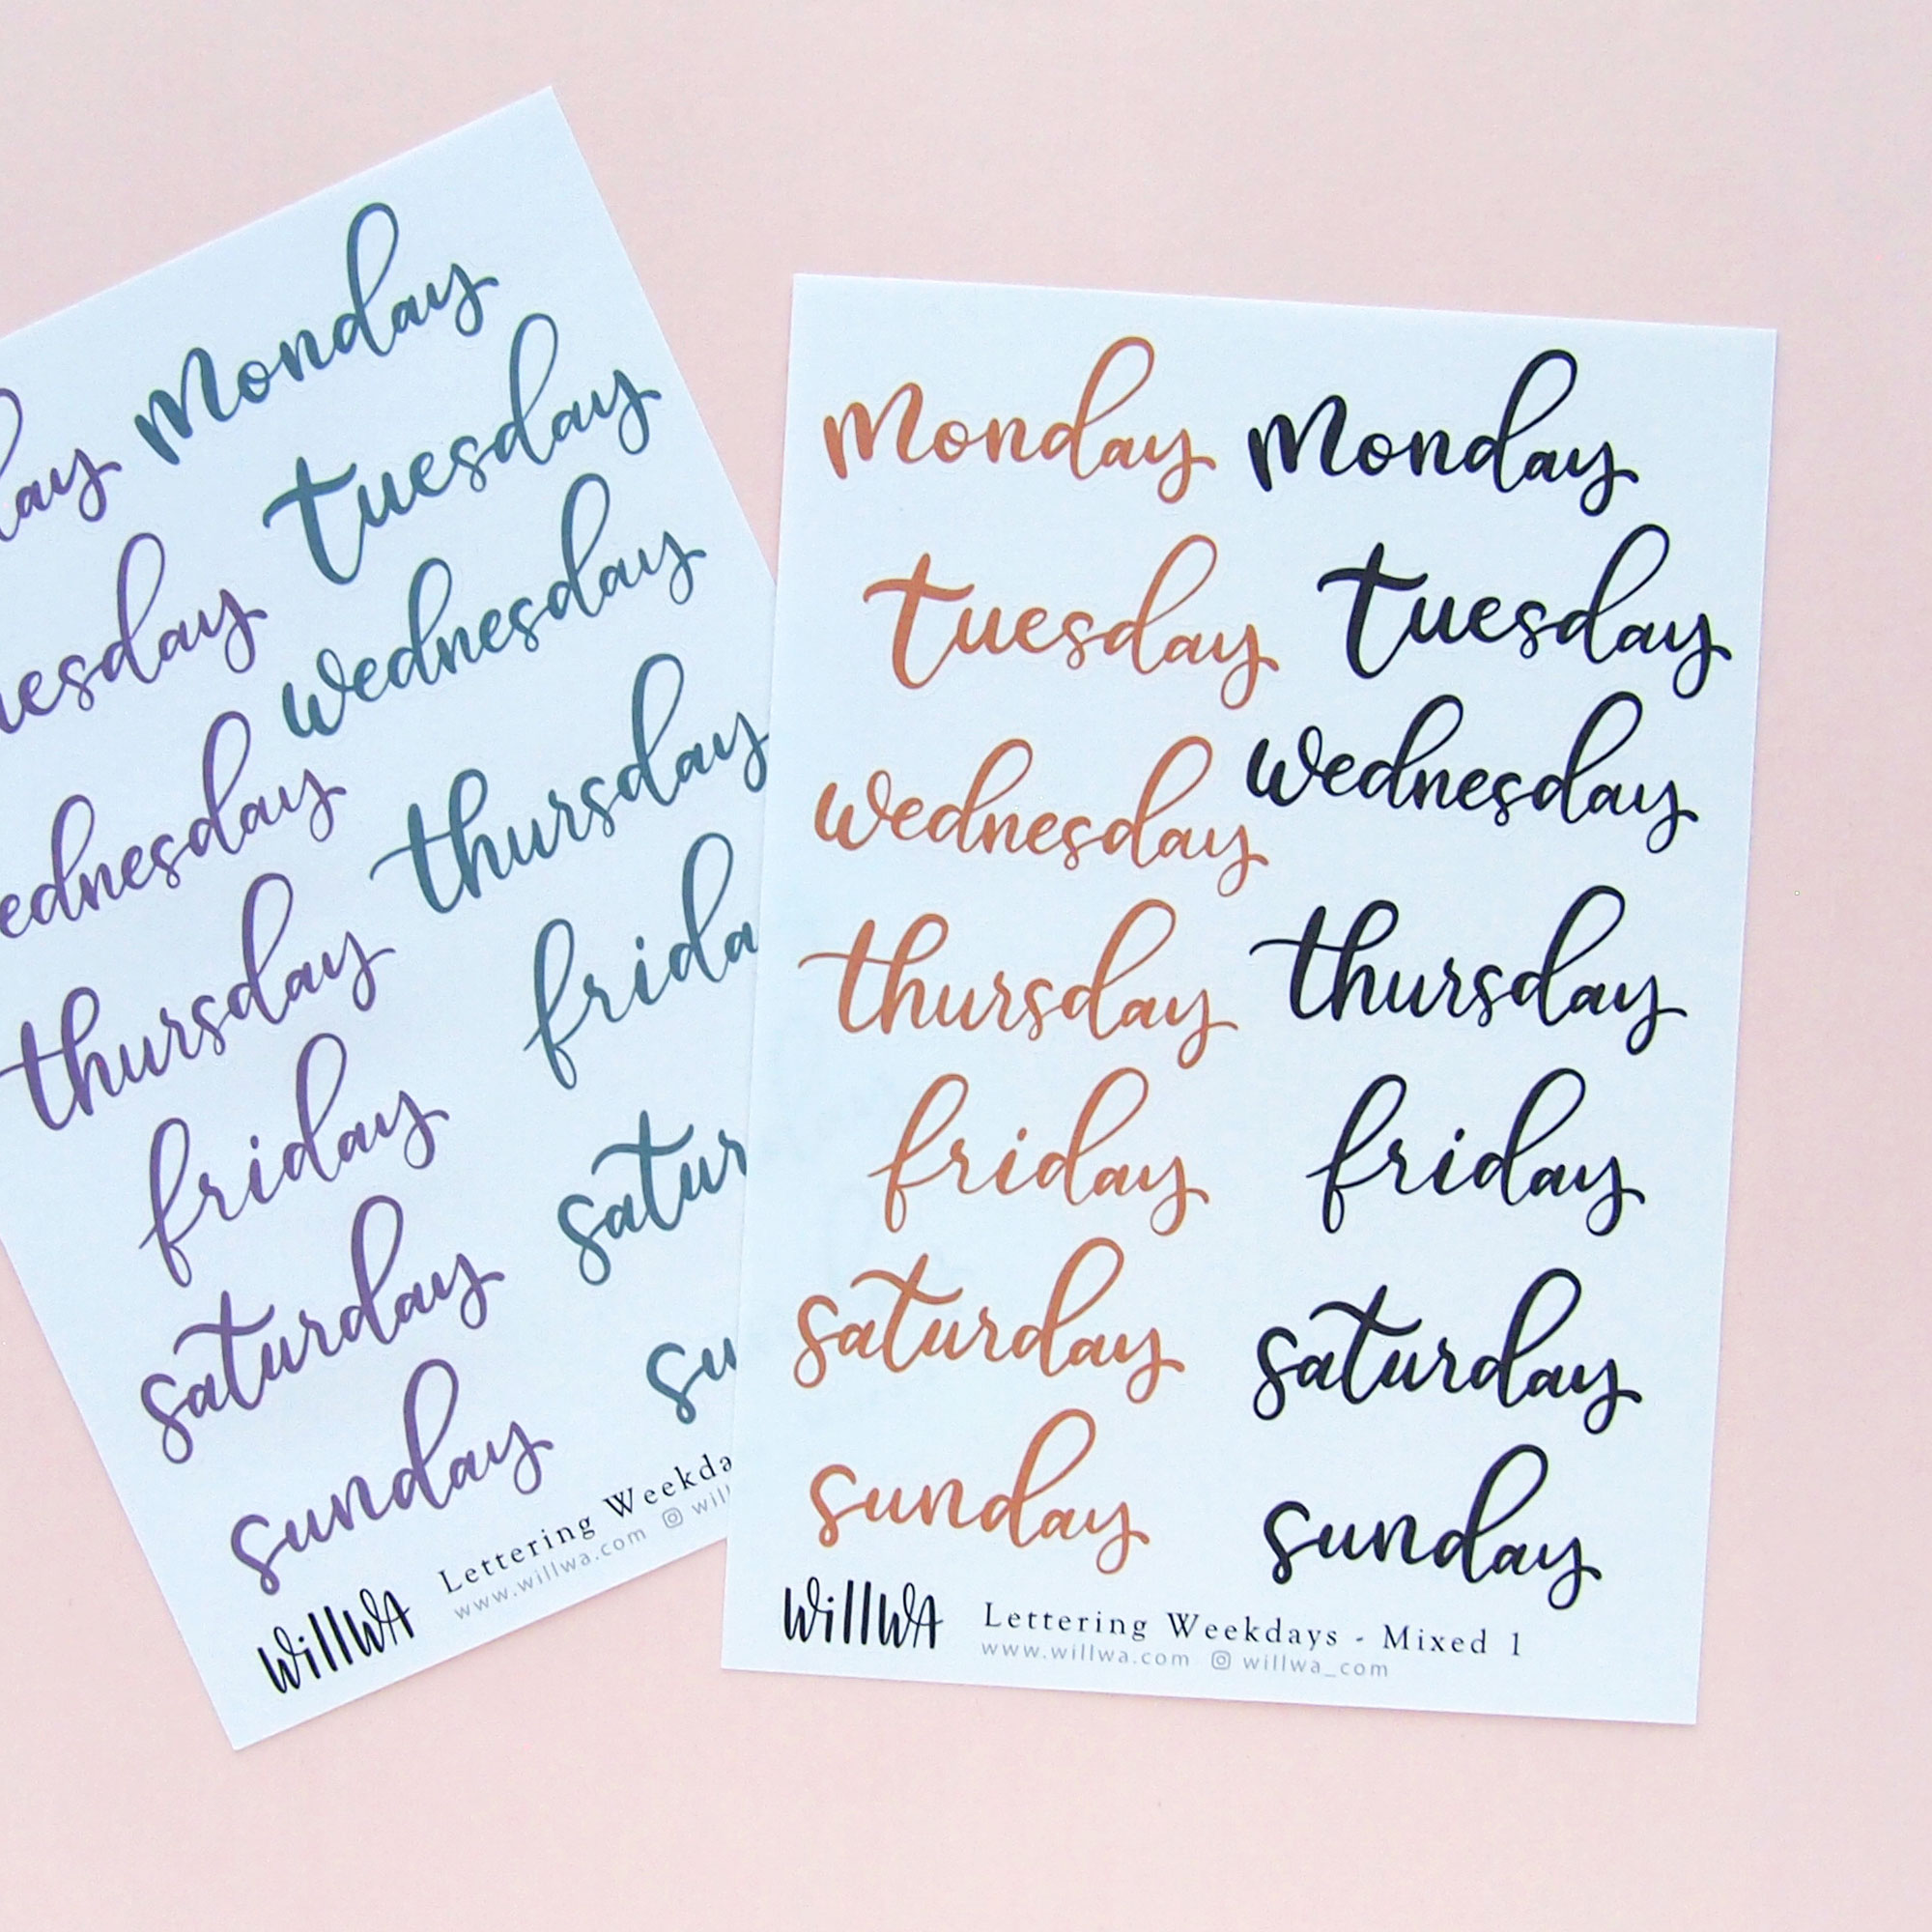 lay monday
uesday tuesday
ednesday wednesday
thursday thursday
friday frida
saturday satur
sunday su
WillWA Lettering Weekda
www.willwa.com will
monday monday
tuesday tuesday
wednesday wednesday
thursday thursday
friday friday
saturday saturday
sunday sunday
WillWA Lettering Weekdays - Mixed 1
www.willwa.com willwa_com